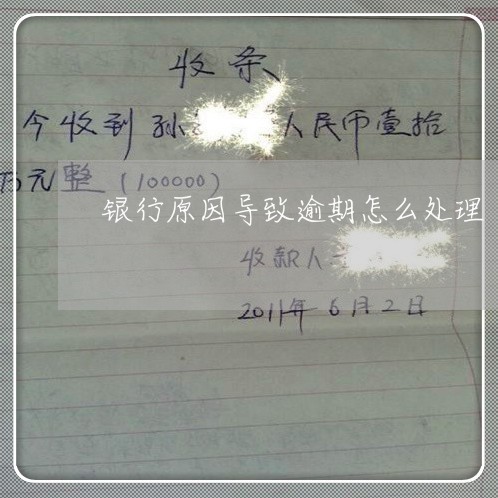 收条
今收到孙 人民币壹拾
万元整(100000)
银行原因导致逾期怎么处理
收款人
2011年6月2日